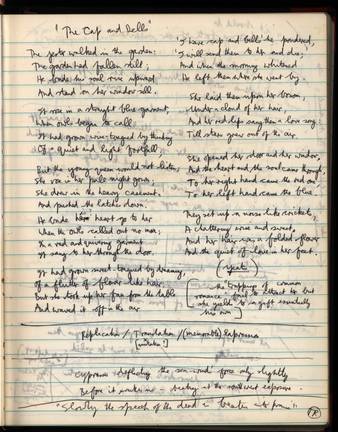 "The Cap and Bells"
The jester walked in the garden:
The garden had fallen still;
He bade his soul rise upward
And stand on her window-sill.
It rose in a straight blue garment,
When owls began to call:
It had grown wise-tongued by thinking
Of a quiet and light footfall;
But the young queen would not listen;
She rose in her pale night gown;
She drew in the heavy casement
And pushed the latches down.
He bade his heart go to her
When the owls called out no more;
In a red and quivering garment
It sang to her through the door.
It had grown sweet-tongued by dreaming,
Of a flutter of flower-like hair;
But she took up her fan from the table
And waved it off on the air.
'I have cap and bells' he pondered,
'I will send them to her and die;'
And when the morning whitened
He left them where she went by.
She laid them upon her bosom,
Under a cloud of her hair,
And her red lips sang them a love song:
Till stars grew out of the air.
She opened her door and her window,
And the heart and the soul came through,
To her right hand came the red one,
To her left hand came the blue.
They set up a noise like crickets,
A chattering wise and sweet,
And her hair was a folded flower
And the quiet of love in her feet.
(Yeats)
the trappings of common
romance to attract her but
she yields to a gift essentially
his own
Replication / Translation / (memorable) Expression
Cypresses deflecting the sea-wind force only slightly
Before it
"Slowly the speech of the dead